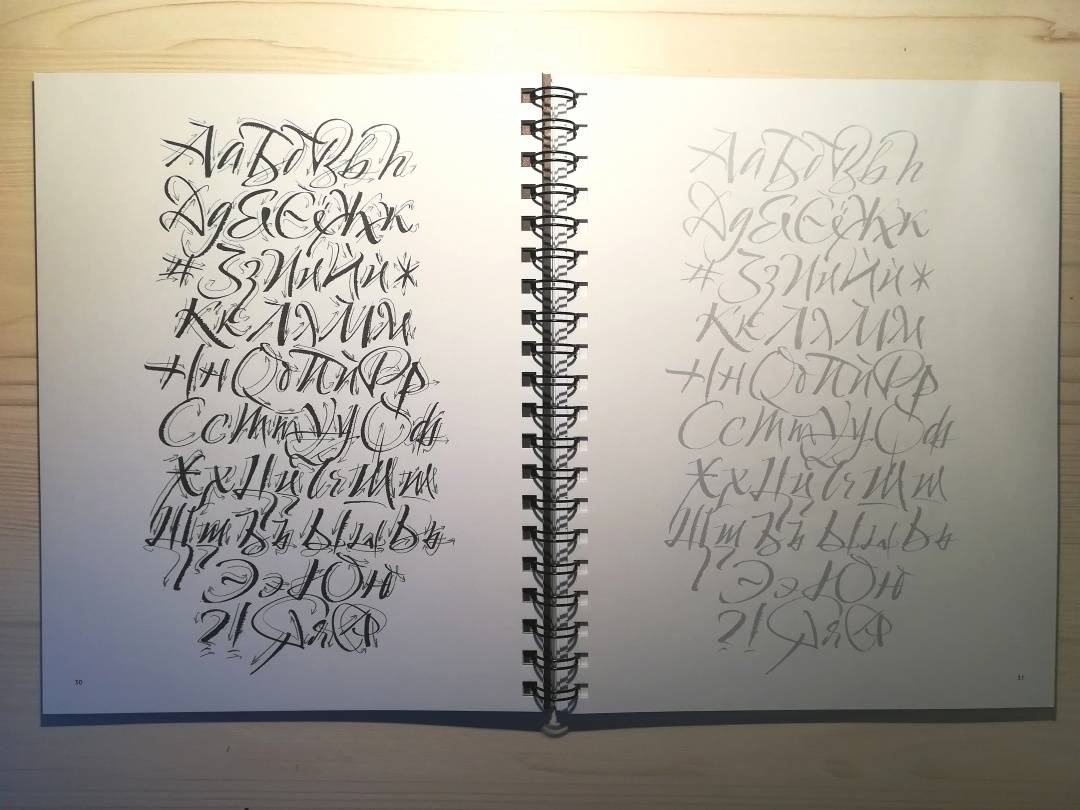 АаБбВвһ
ДдЕеЄёЖж
#ЗзИиЙй*
КкЛлМм
НнОоПпРр
СсТтУуФф
ХхЦцЧчЩщ
ШшЪъЫыЬь
ЭэЮю
?!Яя&
30
АаБбВвһ
ДдЕеЄёЖж
#ЗзИиЙй*
КкЛлМм
НнОоПпРр
СсТтУуФф
ХхЦцЧчЩщ
ШшЪъЫыЬь
ЭэЮю
?!Яя&
31